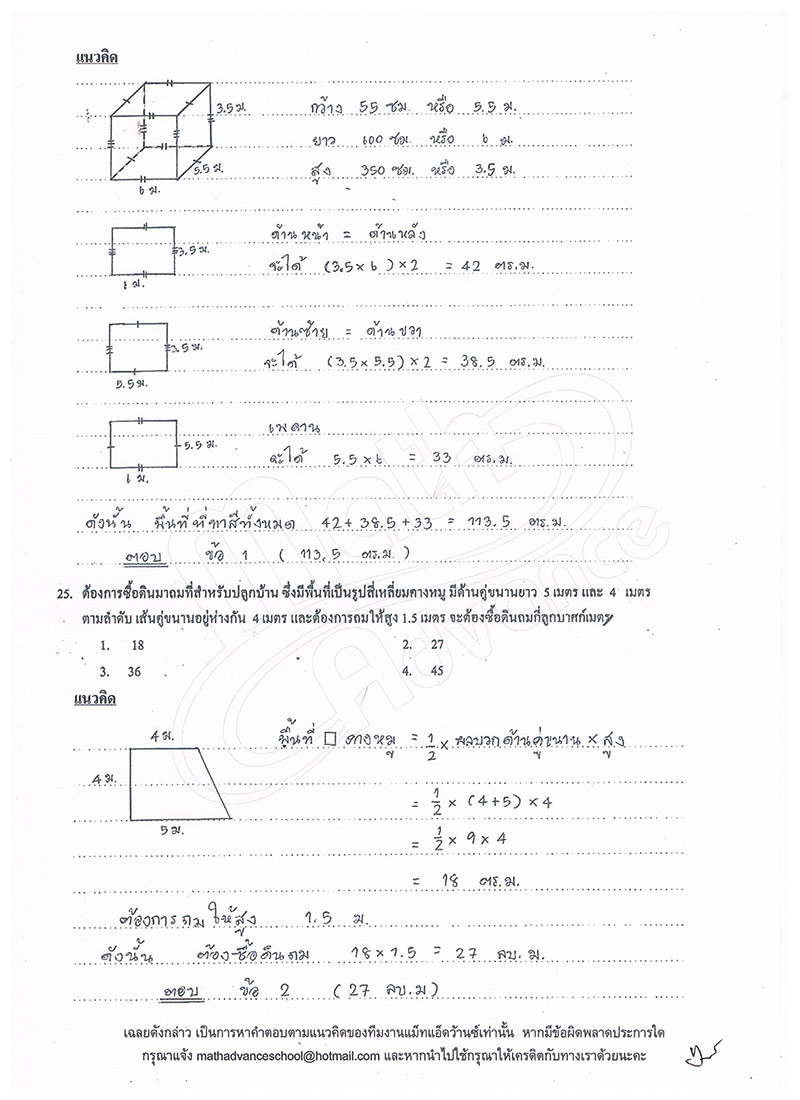 แนวคิด
3.5 ม.
5.5 ม.
6 ม.
กว้าง 55 ซม. หรือ 5.5 ม.
ยาว 600 ซม. หรือ 6 ม.
สูง 350 ซม. หรือ 3.5 ม.
3.5 ม.
6 ม.
ด้านหน้า = ด้านหลัง
จะได้ (3.5 × 6) × 2 = 42 ตร.ม.
3.5 ม.
5.5 ม.
ด้านซ้าย = ด้านขวา
จะได้ (3.5 × 5.5) × 2 = 38.5 ตร.ม
5.5 ม.
6 ม.
เพดาน
จะได้ 5.5 × 6 = 33 ตร.ม.
ดังนั้น พื้นที่ที่ทาสีทั้งหมด 42 + 38.5 + 33 = 113.5 ตร.ม.
ตอบ ข้อ 1 ( 113.5 ตร.ม. )
25. ต้องการซื้อดินมาถมที่สำหรับปลูกบ้าน ซึ่งมีพื้นที่เป็นรูปสี่เหลี่ยมคางหมู มีด้านคู่ขนานยาว 5 เมตร และ 4 เมตร
ตามลำดับ เส้นคู่ขนานอยู่ห่างกัน 4 เมตร และต้องการถมให้สูง 1.5 เมตร จะต้องซื้อดินถมกี่ลูกบาศก์เมตร
1. 18 2. 27
3. 36 4. 45
แนวคิด
4 ม.
4 ม.
5 ม.
พื้นที่ □ คางหมู = 1/2 × ผลบวกด้านคู่ขนาน × สูง
= 1/2 × (4+5) × 4
= 1/2 × 9 × 4
= 18 ตร.ม.
ต้องการถมให้สูง 1.5 ม.
ดังนั้น ต้องซื้อดินถม 18 × 1.5 = 27 ลบ.ม.
ตอบ ข้อ 2 ( 27 ลบ.ม )
เฉลยดังกล่าว เป็นการหาคำตอบตามแนวคิดของทีมงานแม็ทแอ็ดว้านซ์เท่านั้น หากมีข้อผิดพลาดประการใด
กรุณาแจ้ง mathadvanceschool@hotmail.com และหากนำไปใช้กรุณาให้เครดิตกับทางเราด้วยนะคะ
Math
Advance